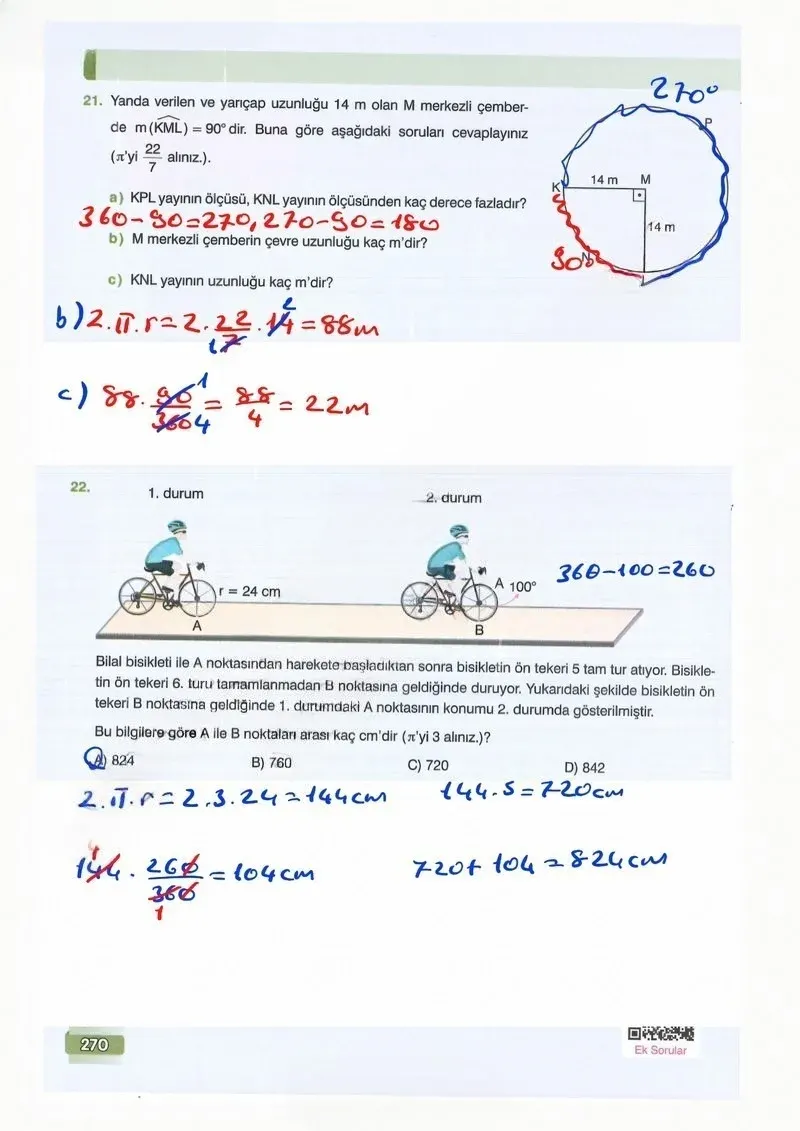 270°
21. Yanda verilen ve yarıçap uzunluğu 14 m olan M merkezli çember-
de m(KML) = 90° dir. Buna göre aşağıdaki soruları cevaplayınız
(π'yi 22/7 alınız.).
P
K
14 m
M
14 m
N
L
90°
a) KPL yayının ölçüsü, KNL yayının ölçüsünden kaç derece fazladır?
360-90=270, 270-90=180
b) M merkezli çemberin çevre uzunluğu kaç m'dir?
c) KNL yayının uzunluğu kaç m'dir?
b) 2.π.r=2.22/7.14=88m
1 2
c) 88.90/360=88/4=22m
1 4
22.
1. durum
2. durum
r = 24 cm
A
A 100°
B
360-100=260
Bilal bisikleti ile A noktasından harekete başladıktan sonra bisikletin ön tekeri 5 tam tur atıyor. Bisikle-
tin ön tekeri 6. turu tamamlanmadan B noktasına geldiğinde duruyor. Yukarıdaki şekilde bisikletin ön
tekeri B noktasına geldiğinde 1. durumdaki A noktasının konumu 2. durumda gösterilmiştir.
Bu bilgilere göre A ile B noktaları arası kaç cm'dir (π'yi 3 alınız.)?
A) 824 B) 760 C) 720 D) 842
2.π.r=2.3.24=144cm 144.5=720cm
144.260/360=104cm 720+104=824cm
1
270
Ek Sorular